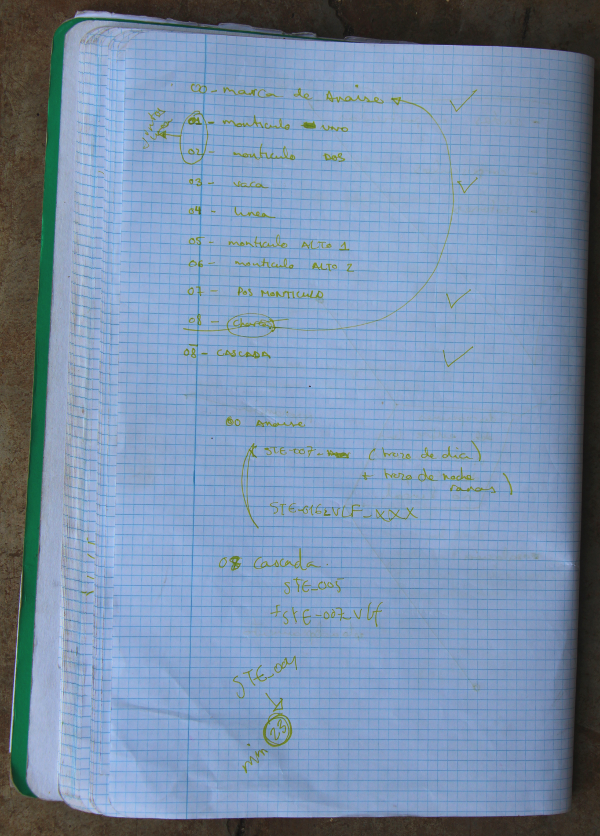 00 - marca de Anaise
01 - montículo UNO
02 - montículo DOS
03 - vaca
04 - Linea
05 - montículo ALTO 1
06 - montículo ALTO 2
07 - POS MONTICULO
08 -
08 - CASCADA
00 Anaise
STE-007 - (hora de dia)
+ hora de noche
ranas)
STE_012_VLF_XXX
08 Cascada
STE_005
+ STE-007_Vlf
STE_001
min 23